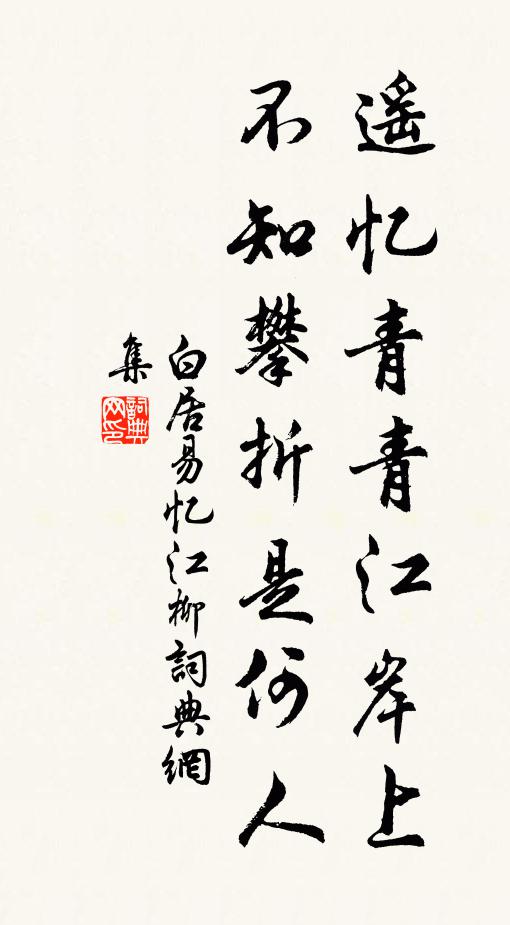 遥忆青青江岸上
不知攀折是何人
白居易忆江柳詞典網
集
詞典
网印